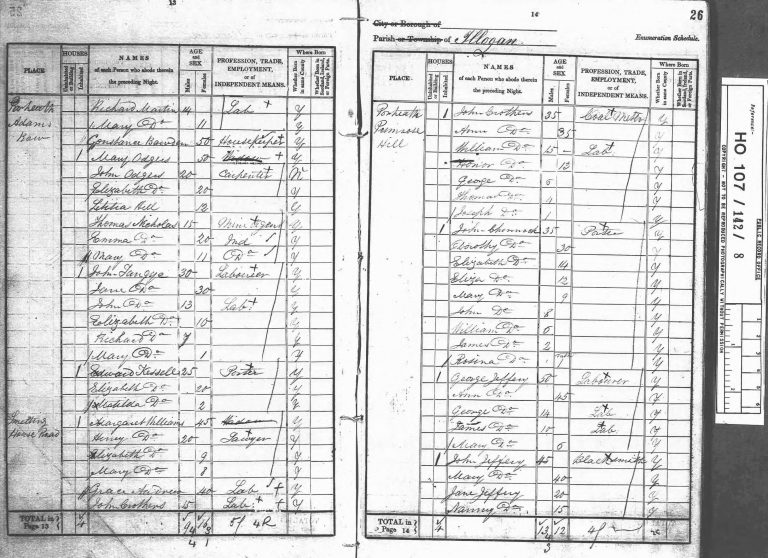 13
PLACE
HOUSES
Uninhabited or Building
Inhabited
NAMES
of each Person who abode therein the preceding Night.
AGE and SEX
Males
Females
PROFESSION, TRADE, EMPLOYMENT, or of INDEPENDENT MEANS.
Where Born
Whether Born in same County
Whether Born in Scotland, Ireland, or Foreign Parts.
Richard Martin 14 Lab Y
Adams Mary Do 11 Y
Row Constance Bawden 50 Housekeeper Y
1 Mary Odgers 50 Y
John Odgers 20 Carpenter N
Elizabeth Do 20 Y
Letitia Hill 12 Y
Thomas Nicholas 15 Mine Agent Y
Emma Do 20 Ind Y
Mary Do 11 Do Y
1 John Tangye 30 Labourer Y
Jane Do 30 Y
John Do 13 Lab Y
Elizabeth Do 10 Y
Richard Do 7 Y
Mary Do 1 Y
1 Edward Kessell 25 Porter Y
Elizabeth Do 20 Y
Matilda Do 2 Y
Smelting 1 Margaret Williams 45 Y
House Road Henry Do 20 Sawyer Y
Elizabeth Do 9 Y
Mary Do 8 Y
Grace Andrew 40 Lab Y
John Crothers 15 Lab Y
TOTAL in Page 13
14
26
City or Borough of
Parish or Township of Illogan
Enumeration Schedule.
PLACE
HOUSES
Uninhabited or Building
Inhabited
NAMES
of each Person who abode therein the preceding Night.
AGE and SEX
Males
Females
PROFESSION, TRADE, EMPLOYMENT, or of INDEPENDENT MEANS.
Where Born
Whether Born in same County
Whether Born in Scotland, Ireland, or Foreign Parts.
Portreath 1 John Crothers 35 Coal Y
Primrose Ann Do 35 Y
Hill William Do 15 Lab Y
Honor Do 12 Y
George Do 6 Y
Thomas Do 4 Y
Joseph Do 1 Y
1 John 35 Porter Y
Dorothy Do 30 Y
Elizabeth Do 14 Y
Eliza Do 12 Y
Mary Do 9 Y
John Do 8 Y
William Do 6 Y
James Do 2 Y
Rosina Do Y
1 George Jeffery 50 Labourer Y
Ann Do 45 Y
George Do 14 Lab Y
James Do 10 Lab Y
Mary Do 6 Y
1 John Jeffery 45 Blacksmith Y
Mary Do 40 Y
Jane Jeffery 20 Y
Nanny Do 15 Y
TOTAL in Page 14
Reference:-
HO 107/142/8
PUBLIC RECORD OFFICE
COPYRIGHT - NOT TO BE REPRODUCED PHOTOGRAPHICALLY WITHOUT PERMISSION